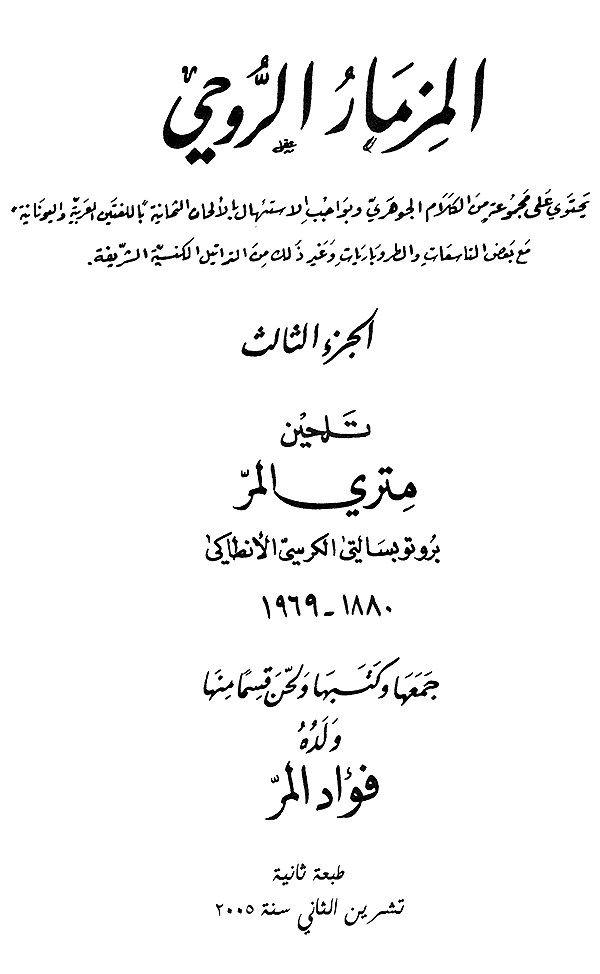 المِزمَارُ الرُّوحيْ
يَحتَوي عَلى مَجمُوعَةٍ مِنَ الكَلَامِ الجَوهَرِيّ وبوَاجْبِ الاستِهال بالألحان الثمانية "باللغتين العَربيّة واليونانية"
مَع بَعض التاسعَاتِ والطروباريَاتِ وَغير ذَلك مِنَ التراتيل الكنسيّة الشرّيفة.
الجزء الثالث
تَلحيْن
مِتري المرّ
بروتوبسَالتي الكرسيّ الأنطاكي
١٨٨٠ - ١٩٦٩
جَمَعَهَا وكتَبهَا ولحّنَ قِسِمًا مِنهَا
وَلَدُهُ
فؤاد المرّ
طبعة ثانية
تشرين الثاني سنة ٢٠٠٥